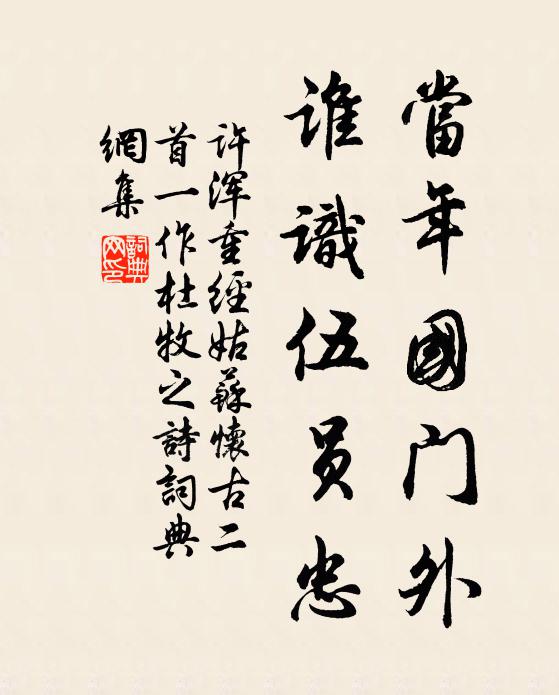 當年國门外
誰識伍员忠
许浑重經姑蘇懷古二
首一作杜牧之詩詞典
網集
詞典网印